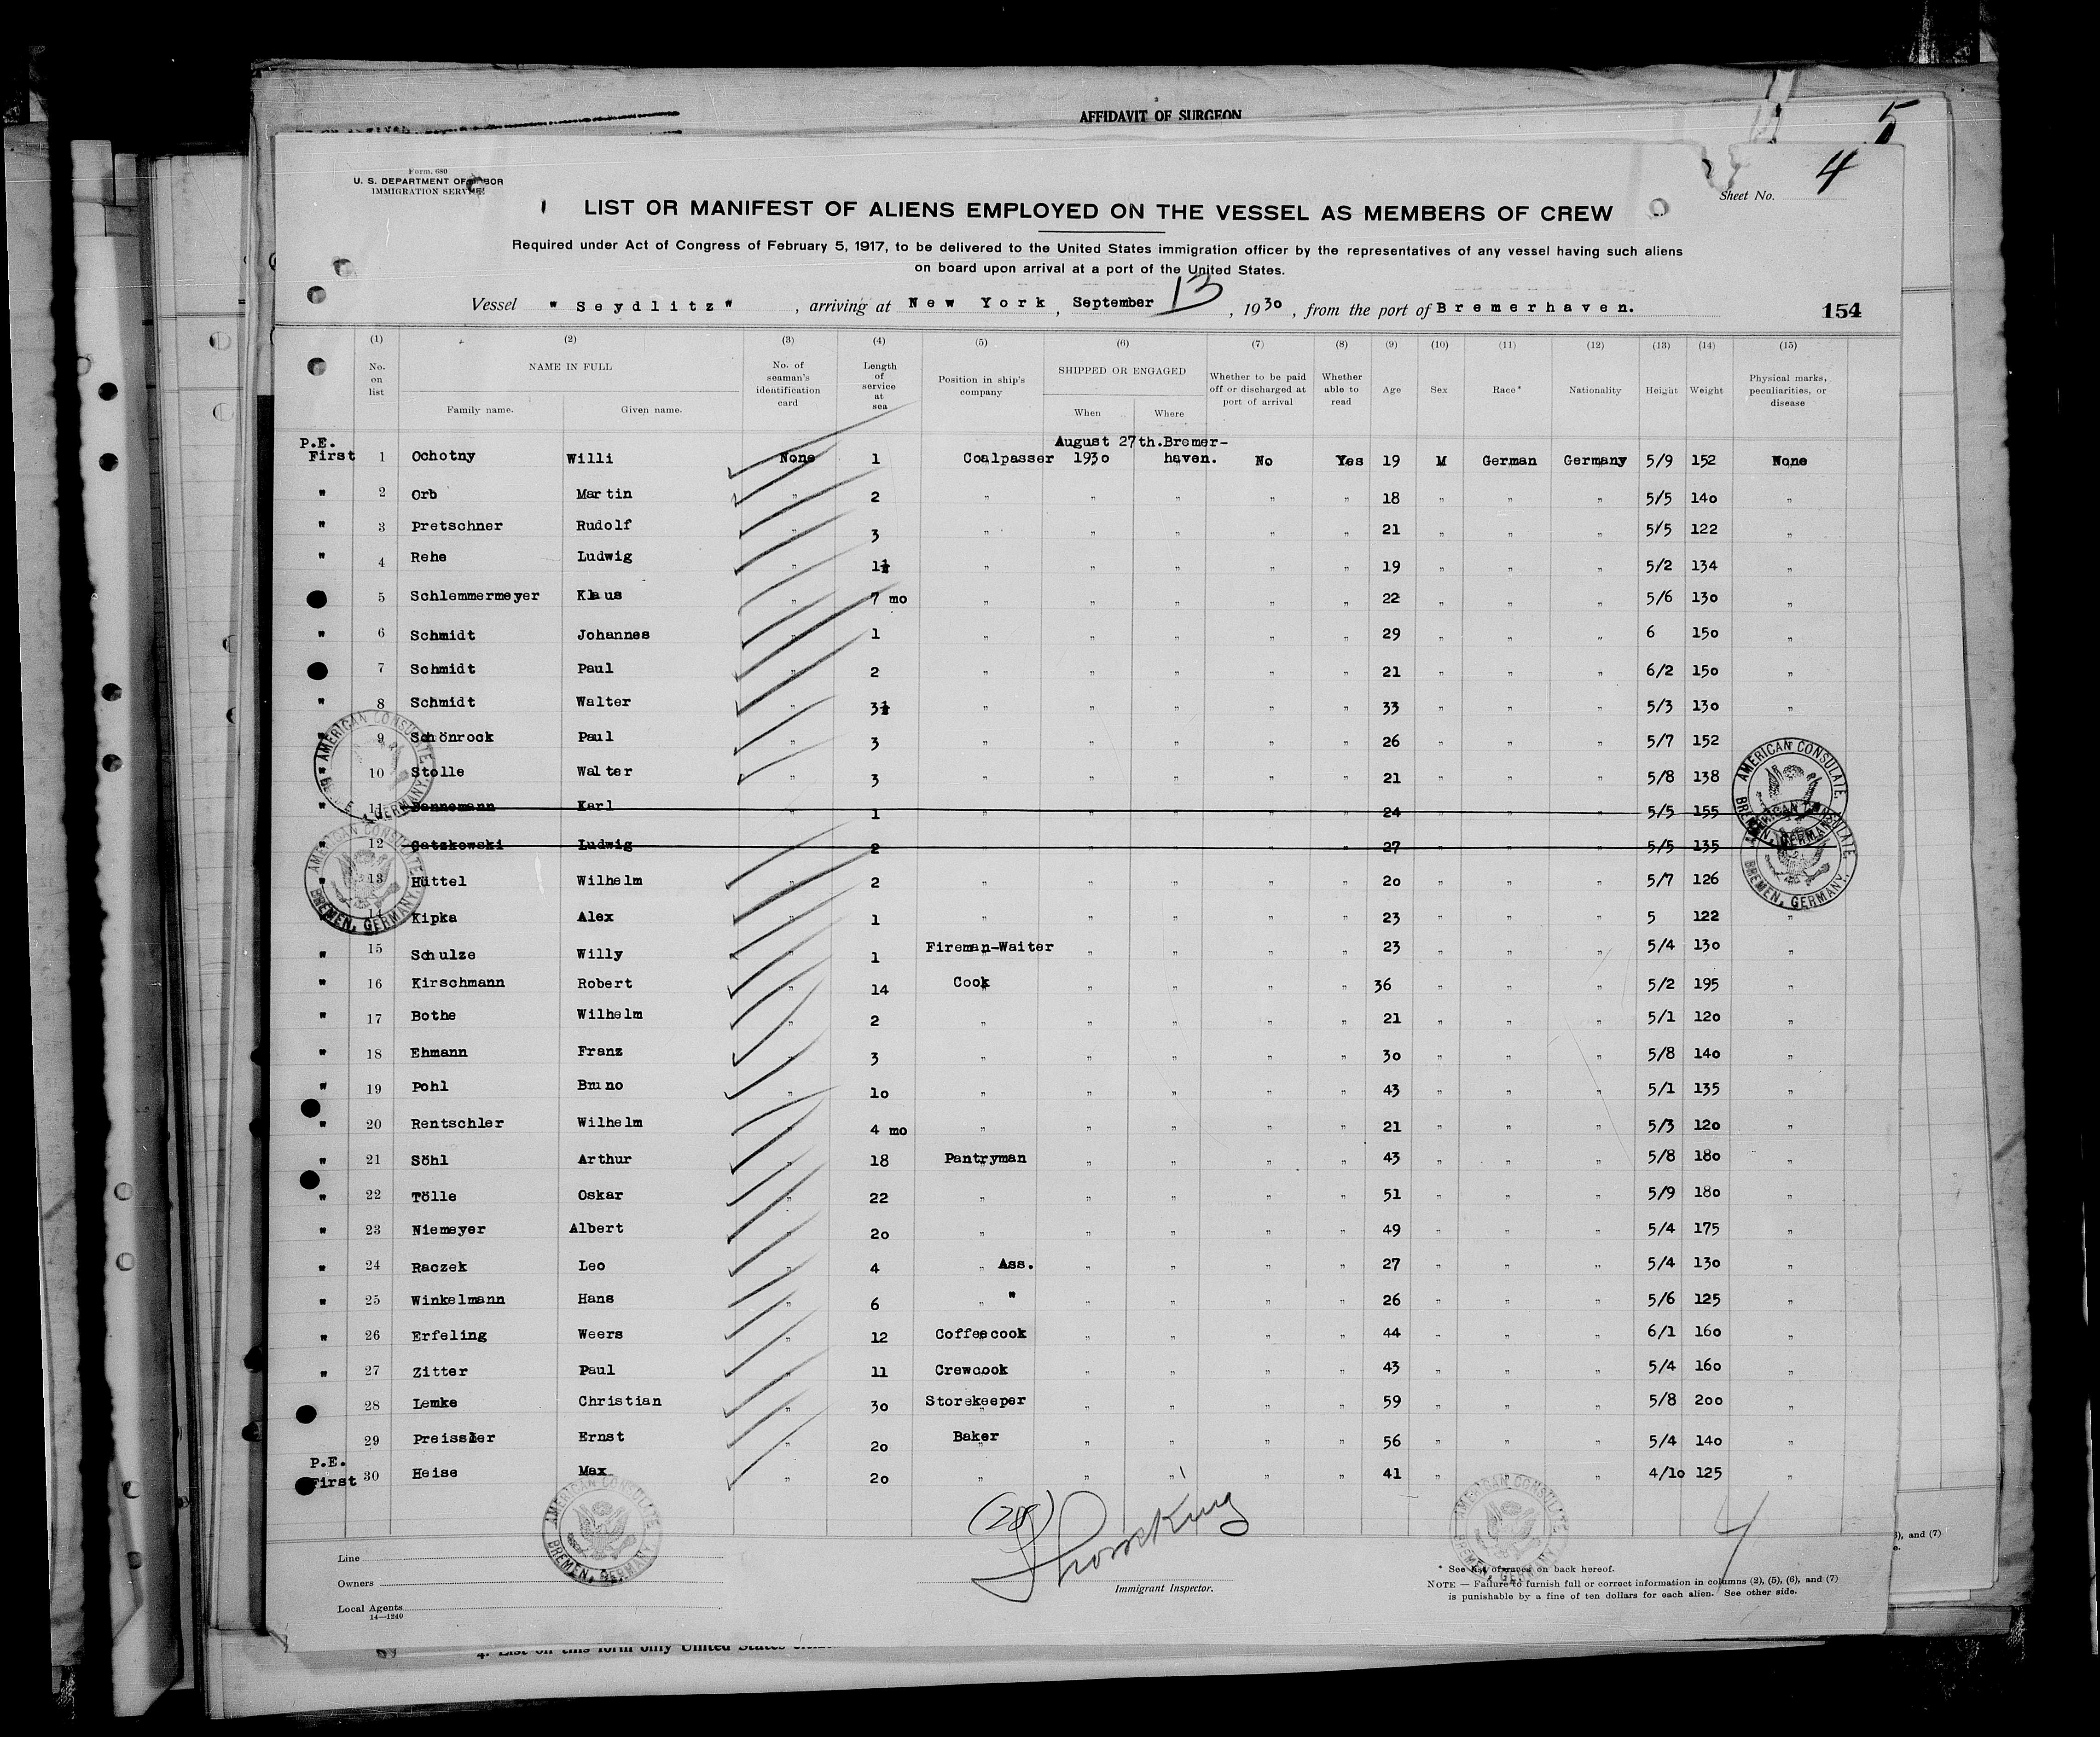 AFFIDAVIT OF SURGEON
5
Form. 680
U. S. DEPARTMENT OF LABOR
IMMIGRATION SERVICE
Sheet No. 4
LIST OR MANIFEST OF ALIENS EMPLOYED ON THE VESSEL AS MEMBERS OF CREW
Required under Act of Congress of February 5, 1917, to be delivered to the United States immigration officer by the representatives of any vessel having such aliens
on board upon arrival at a port of the United States.
Vessel " Seydlitz" , arriving at New York , September 13 , 1930 , from the port of Bremerhaven. 154
(1) (2) (3) (4) (5) (6) (7) (8) (9) (10) (11) (12) (13) (14) (15)
No. on list NAME IN FULL Family name. Given name. No. of seaman's identification card Length of service at sea Position in ship's company SHIPPED OR ENGAGED When Where Whether to be paid off or discharged at port of arrival Whether able to read Age Sex Race* Nationality Height Weight Physical marks, peculiarities, or disease
P.E. August 27th. Bremer-
First 1 Ochotny Willi None 1 Coalpasser 1930 haven. No Yes 19 M German Germany 5/9 152 None
" 2 Orb Martin " 2 " " " " " 18 " " " 5/5 140 "
" 3 Pretschner Rudolf " 3 " " " " " 21 " " " 5/5 122 "
" 4 Rehe Ludwig " 1½ " " " " " 19 " " " 5/2 134 "
5 Schlemmermeyer Klaus " 7 mo " " " " " 22 " " " 5/6 130 "
" 6 Schmidt Johannes " 1 " " " " " 29 " " " 6 150 "
7 Schmidt Paul " 2 " " " " " 21 " " " 6/2 150 "
" 8 Schmidt Walter " 3½ " " " " " 33 " " " 5/3 130 "
" 9 Schönrock Paul " 3 " " " " " 26 " " " 5/7 152 "
" 10 Stolle Walter " 3 " " " " " 21 " " " 5/8 138 "
" 11 Bannemann Karl " 1 " " " " " 24 " " " 5/5 155
" 12 Gatzkowski Ludwig " 2 " " " " " 27 " " " 5/5 135
" 13 Hüttel Wilhelm " 2 " " " " " 20 " " " 5/7 126
" 14 Kipka Alex " 1 " " " " " 23 " " " 5 122 "
" 15 Schulze Willy " 1 Fireman-Waiter " " " " 23 " " " 5/4 130 "
" 16 Kirschmann Robert " 14 Cook " " " " 36 " " " 5/2 195 "
" 17 Bothe Wilhelm " 2 " " " " " 21 " " " 5/1 120 "
" 18 Ehmann Franz " 3 " " " " " 30 " " " 5/8 140 "
" 19 Pohl Bruno " 10 " " " " " 43 " " " 5/1 135 "
" 20 Rentschler Wilhelm " 4 mo " " " " " 21 " " " 5/3 120 "
" 21 Söhl Arthur " 18 Pantryman " " " " 43 " " " 5/8 180 "
" 22 Tölle Oskar " 22 " " " " " 51 " " " 5/9 180 "
" 23 Niemeyer Albert " 20 " " " " " 49 " " " 5/4 175 "
" 24 Raczek Leo " 4 " Ass. " " " " 27 " " " 5/4 130 "
" 25 Winkelmann Hans " 6 " " " " " " 26 " " " 5/6 125 "
" 26 Erfeling Weers " 12 Coffeecook " " " " 44 " " " 6/1 160 "
" 27 Zitter Paul " 11 Crewcook " " " " 43 " " " 5/4 160 "
28 Lemke Christian " 30 Storekeeper " " " " 59 " " " 5/8 200 "
29 Preissler Ernst " 20 Baker " " " " 56 " " " 5/4 140 "
P.E.
First 30 Heise Max " 20 " " " " " 41 " " " 4/10 125 "
AMERICAN CONSULATE, BREMEN, GERMANY.
AMERICAN CONSULATE, BREMEN, GERMANY.
AMERICAN CONSULATE, BREMEN, GERMANY.
AMERICAN CONSULATE, BREMEN, GERMANY.
AMERICAN CONSULATE, BREMEN, GERMANY.
AMERICAN CONSULATE, BREMEN, GERMANY.
(28)
Line
Owners
Local Agents
14—1240
Immigrant Inspector.
* See list of races on back hereof.
NOTE — Failure to furnish full or correct information in columns (2), (5), (6), and (7)
is punishable by a fine of ten dollars for each alien. See other side.
), and (7)
4. List on this form only United States